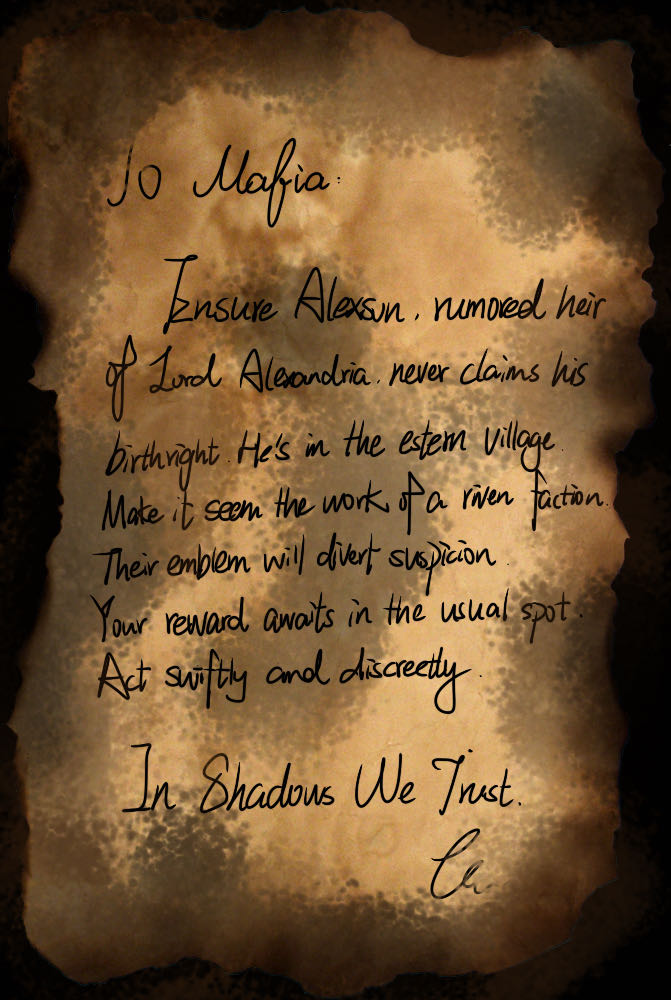 To Mafia:
Ensure Alexsun, rumored heir
of Lord Alexandria, never claims his
birthright. He's in the estern village.
Make it seem the work of a riven faction.
Their emblem will divert suspicion.
Your reward awaits in the usual spot.
Act swiftly and discreetly.
In Shadows We Trust.